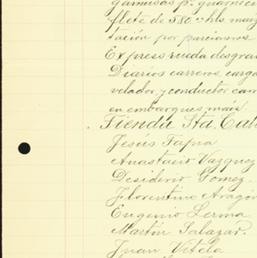 gamusas p. guarnici
flete de 580 hls. maiz
tación por parciones
Express rueda desgran
Diarios carrero, carga
velador, y conductor carr
en embarques maiz
Tienda Sta. Cat
Jesús Tapia
Anastacio Vazquez
Desiderio Gomez
Florentino Aragón
Eugenio Lerma
Martín Salazar.
Juan Vitela